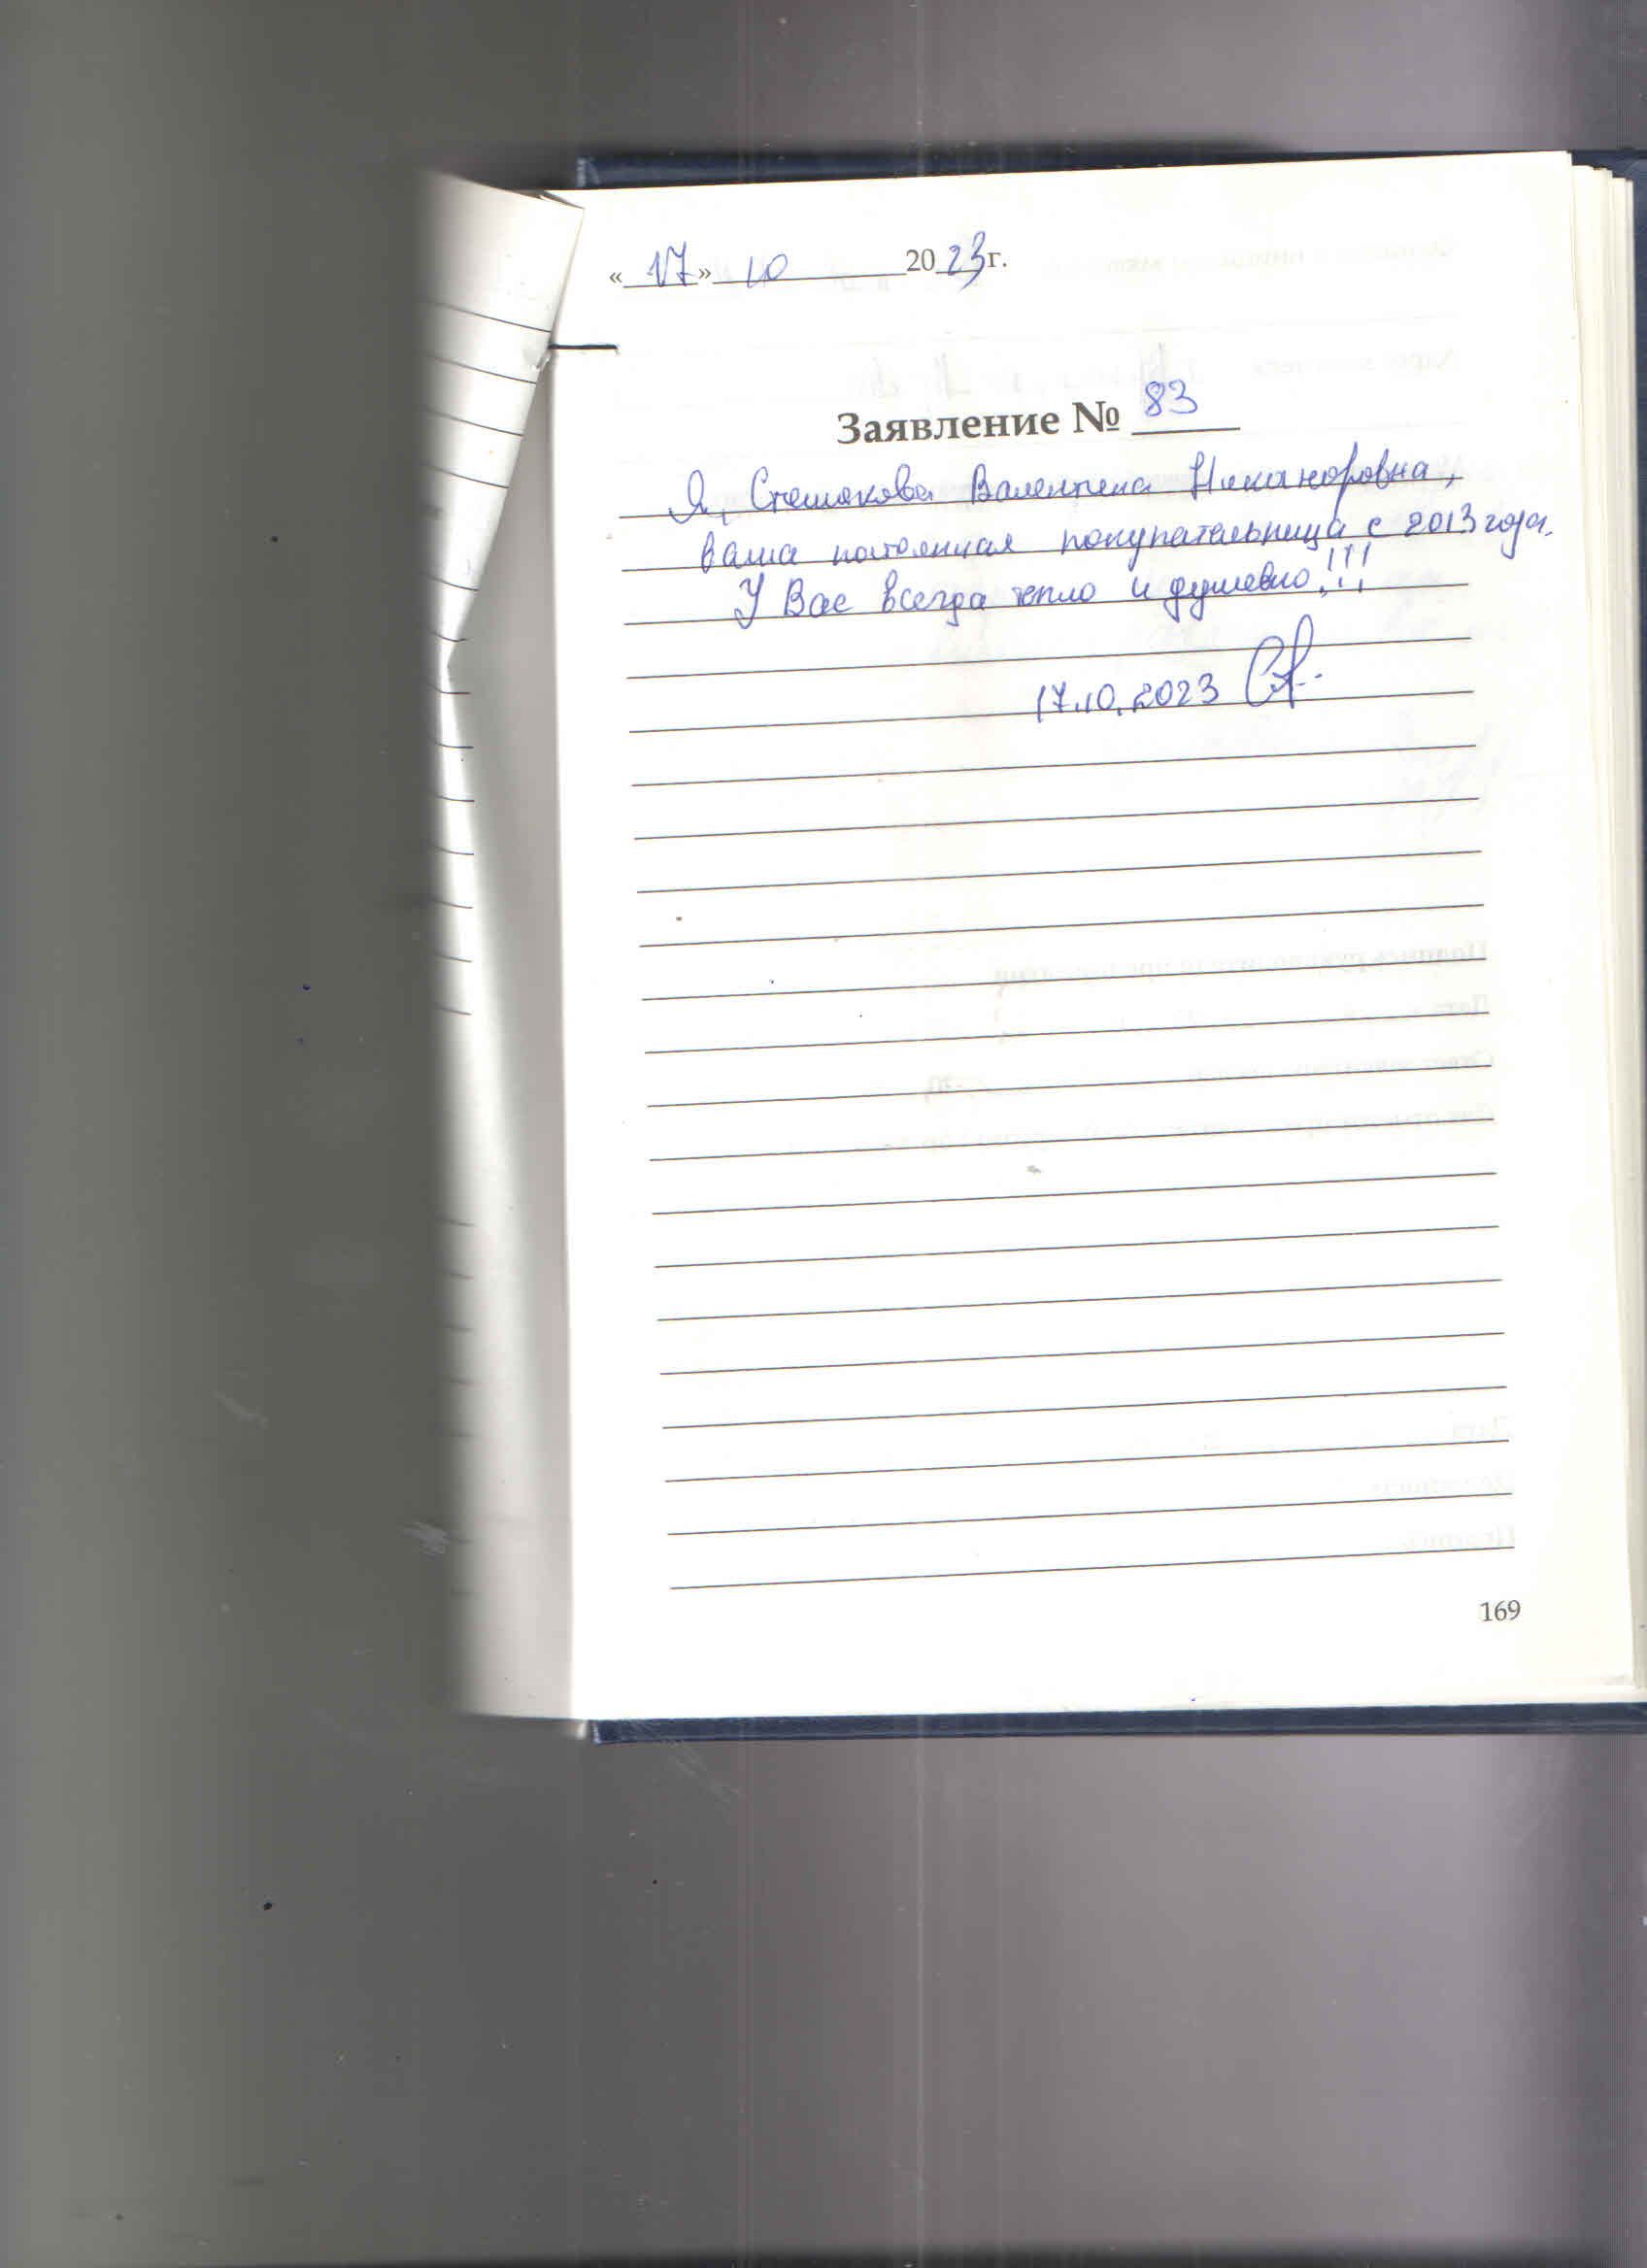 «17» 10 2023г.
Заявление № 83
Я, Стешакова Валентина Никаноровна,
ваша постоянная покупательница с 2013 года.
У Вас всегда тепло и душевно!!!
17.10.2023
169